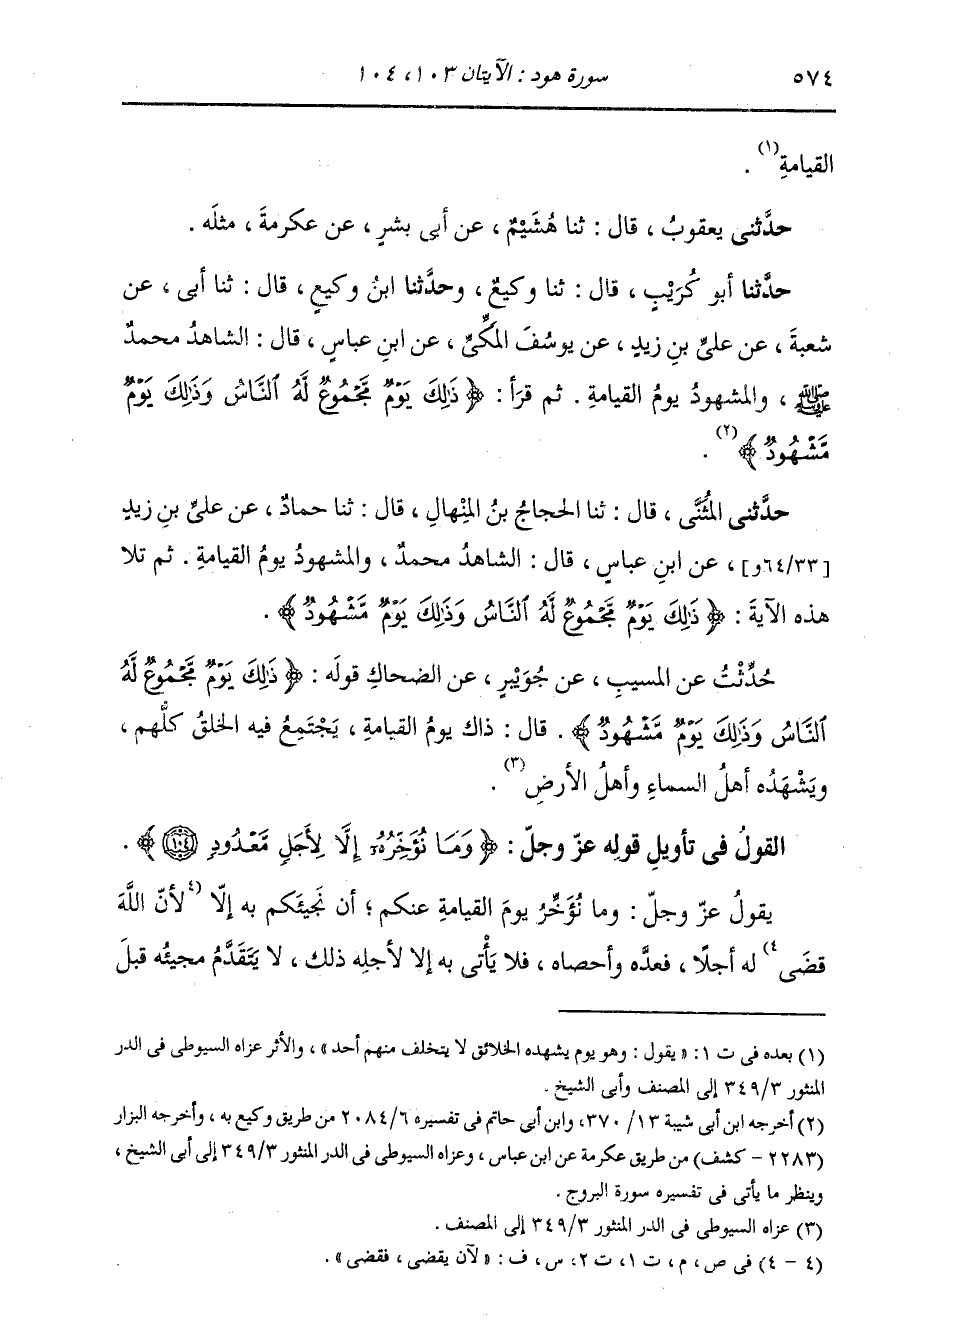 ٥٧٤ سورة هود : الآيتان ١٠٣، ١٠٤
القيامةِ(١) .
حدَّثنى يعقوبُ ، قال : ثنا هُشَيْمٌ ، عن أبى بشرٍ ، عن عكرمةَ ، مثلَه .
حدَّثنا أبو كُرَيْبٍ ، قال : ثنا وكيعٌ ، وحدَّثنا ابنُ وكيعٍ ، قال : ثنا أبى ، عن
شعبةَ ، عن علىِّ بنِ زيدٍ ، عن يوسُفَ المكِّىِّ ، عن ابنِ عباسٍ ، قال : الشاهدُ محمدٌ
ﷺ ، والمشهودُ يومُ القيامةِ . ثم قرَأ : ﴿ ذَٰلِكَ يَوْمٌ مَّجْمُوعٌ لَّهُ ٱلنَّاسُ وَذَٰلِكَ يَوْمٌ
مَّشْهُودٌ ﴾(٢) .
حدَّثنى المُثَنَّى ، قال : ثنا الحجاجُ بنُ المِنْهالِ ، قال : ثنا حمادٌ ، عن علىِّ بنِ زيدٍ
[٦٤/٣٣و] ، عن ابنِ عباسٍ ، قال : الشاهدُ محمدٌ ، والمشهودُ يومُ القيامةِ . ثم تلا
هذه الآيةَ : ﴿ ذَٰلِكَ يَوْمٌ مَّجْمُوعٌ لَّهُ ٱلنَّاسُ وَذَٰلِكَ يَوْمٌ مَّشْهُودٌ ﴾ .
حُدِّثْتُ عن المسيبِ ، عن جُوَيْبِرٍ ، عن الضحاكِ قولَه : ﴿ ذَٰلِكَ يَوْمٌ مَّجْمُوعٌ لَّهُ
ٱلنَّاسُ وَذَٰلِكَ يَوْمٌ مَّشْهُودٌ ﴾ . قال : ذاك يومُ القيامةِ ، يَجْتَمِعُ فيه الخلقُ كلُّهم ،
ويَشْهَدُه أهلُ السماءِ وأهلُ الأرضِ(٣) .
القولُ فى تأويلِ قولِه عزّ وجلّ : ﴿ وَمَا نُؤَخِّرُهُۥٓ إِلَّا لِأَجَلٍ مَّعْدُودٍ ﴿١٠٤﴾ ﴾ .
يقولُ عزّ وجلّ : وما نُؤَخِّرُ يومَ القيامةِ عنكم ؛ أن نَجيئَكم به إلّا (٤لأنّ اللَّهَ
قضَى٤) له أجلًا ، فعدَّه وأحصاه ، فلا يَأْتى به إلا لأجلِه ذلك ، لا يَتَقَدَّمُ مجيئُه قبلَ
(١) بعده فى ت ١: « يقول : وهو يوم يشهده الخلائق لا يتخلف منهم أحد » ، والأثر عزاه السيوطى فى الدر
المنثور ٣٤٩/٣ إلى المصنف وأبى الشيخ .
(٢) أخرجه ابن أبى شيبة ١٣/ ٣٧٠، وابن أبى حاتم فى تفسيره ٢٠٨٤/٦ من طريق وكيع به ، وأخرجه البزار
(٢٢٨٣ - كشف) من طريق عكرمة عن ابن عباس ، وعزاه السيوطى فى الدر المنثور ٣٤٩/٣ إلى أبى الشيخ ،
وينظر ما يأتى فى تفسيره سورة البروج .
(٣) عزاه السيوطى فى الدر المنثور ٣٤٩/٣ إلى المصنف .
(٤ - ٤) فى ص ، م ، ت ١، ت ٢، س ، ف : « لآن يقضى ، فقضى » .